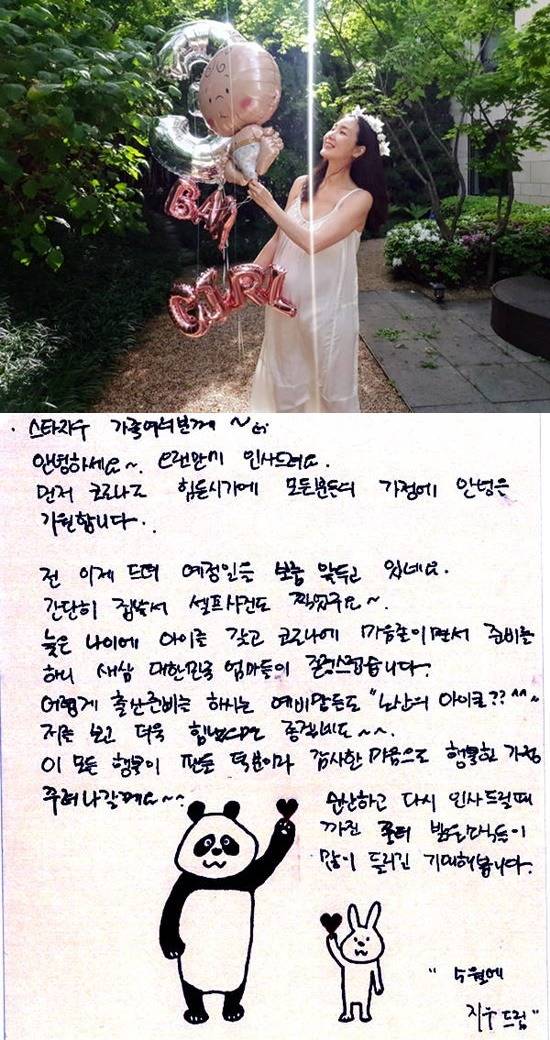 BABY
GIRL
· 스타지우 가족여러분께 ~
안녕하세요~. 오랜만에 인사드려요.
먼저 코로나로 힘든시기에 모든분들의 가정에 안녕을
기원합니다..
전 이제 드뎌 예정일을 보름 앞두고 있네요.
간단히 집앞서 셀프사진도 찍었구요~.
늦은 나이에 아이를 갖고 코로나에 마음졸이면서 준비를
하니 새삼 대한민국 엄마들이 존경스럽습니다.
어렵게 출산준비를 하시는 예비맘들도 "노산의 아이콘?? ^^~
저를 보고 더욱 힘냈으면 좋겠네요~~.
이 모든 행복이 팬들 덕분이라 감사한 마음으로 행복한 가정
꾸려나갈께요~~.
순산하고 다시 인사드릴때
까진 좀더 밝은소식들이
많이 들리길 기대해봅니다.
" 5월에
지우 드림"